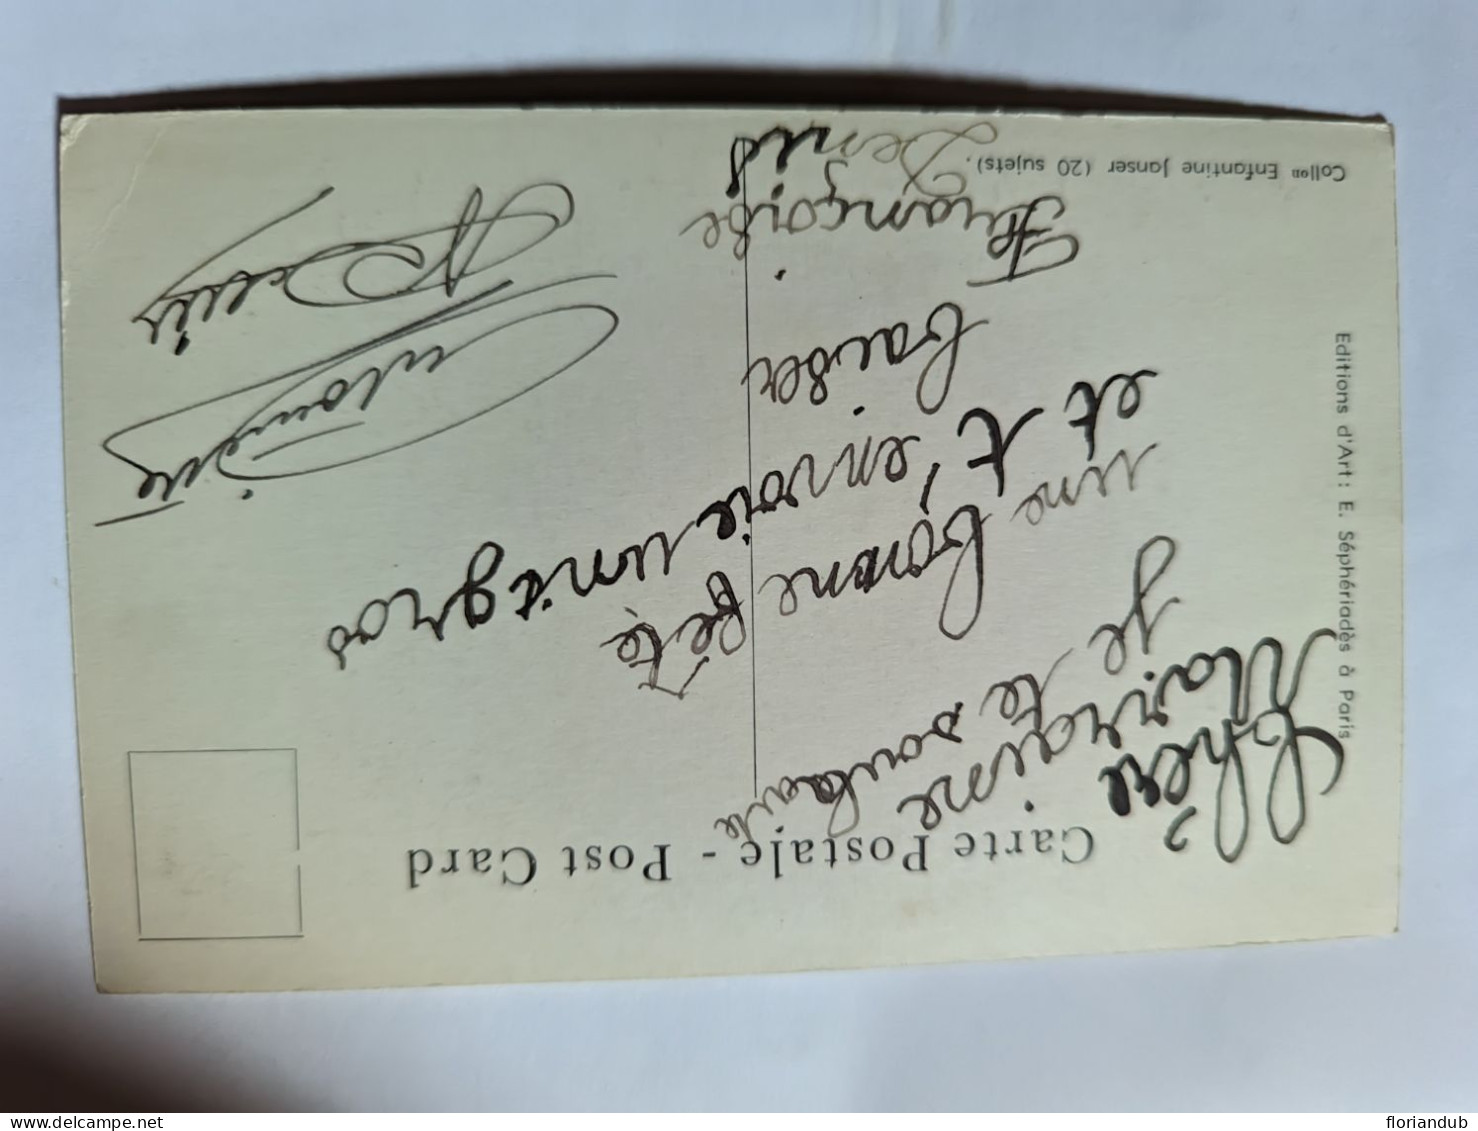 Carte Postale - Post Card
Chère
Marraine
je te souhaite
une bonne fête
et t'envoie un gros
baiser
Françoise
Denis
Coll.on Enfantine Janser (20 sujets).
Editions d'Art : E. Séphériadès à Paris
delcampe.net
floriandub